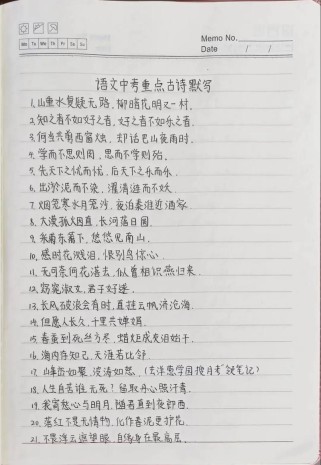 Memo No.
Mo Tu We Th Fr Sa Su
Date / /
语文中考重点古诗默写
1.山重水复疑无路,柳暗花明又一村.
2.知之者不如好之者,好之者不如乐之者.
3.何当共剪西窗烛,却话巴山夜雨时.
4.学而不思则罔,思而不学则殆.
5.先天下之忧而忧,后天下之乐而乐.
6.出淤泥而不染,濯清涟而不妖.
7.烟笼寒水月笼沙,夜泊秦淮近酒家.
8.大漠孤烟直,长河落日圆.
9.采菊东篱下,悠悠见南山.
10.感时花溅泪,恨别鸟惊心.
11.无可奈何花落去,似曾相识燕归来.
12.窈窕淑女,君子好逑.
13.长风破浪会有时,直挂云帆济沧海.
14.但愿人长久,千里共婵娟.
15.春蚕到死丝方尽,蜡炬成灰泪始干.
16.海内存知己,天涯若比邻.
17.峰峦如聚,波涛如怒.(
18.人生自古谁无死?留取丹心照汗青.
19.我寄愁心与明月,随君直到夜郎西.
20.落红不是无情物,化作春泥更护花.
21.不畏浮云遮望眼,自缘身在最高层.